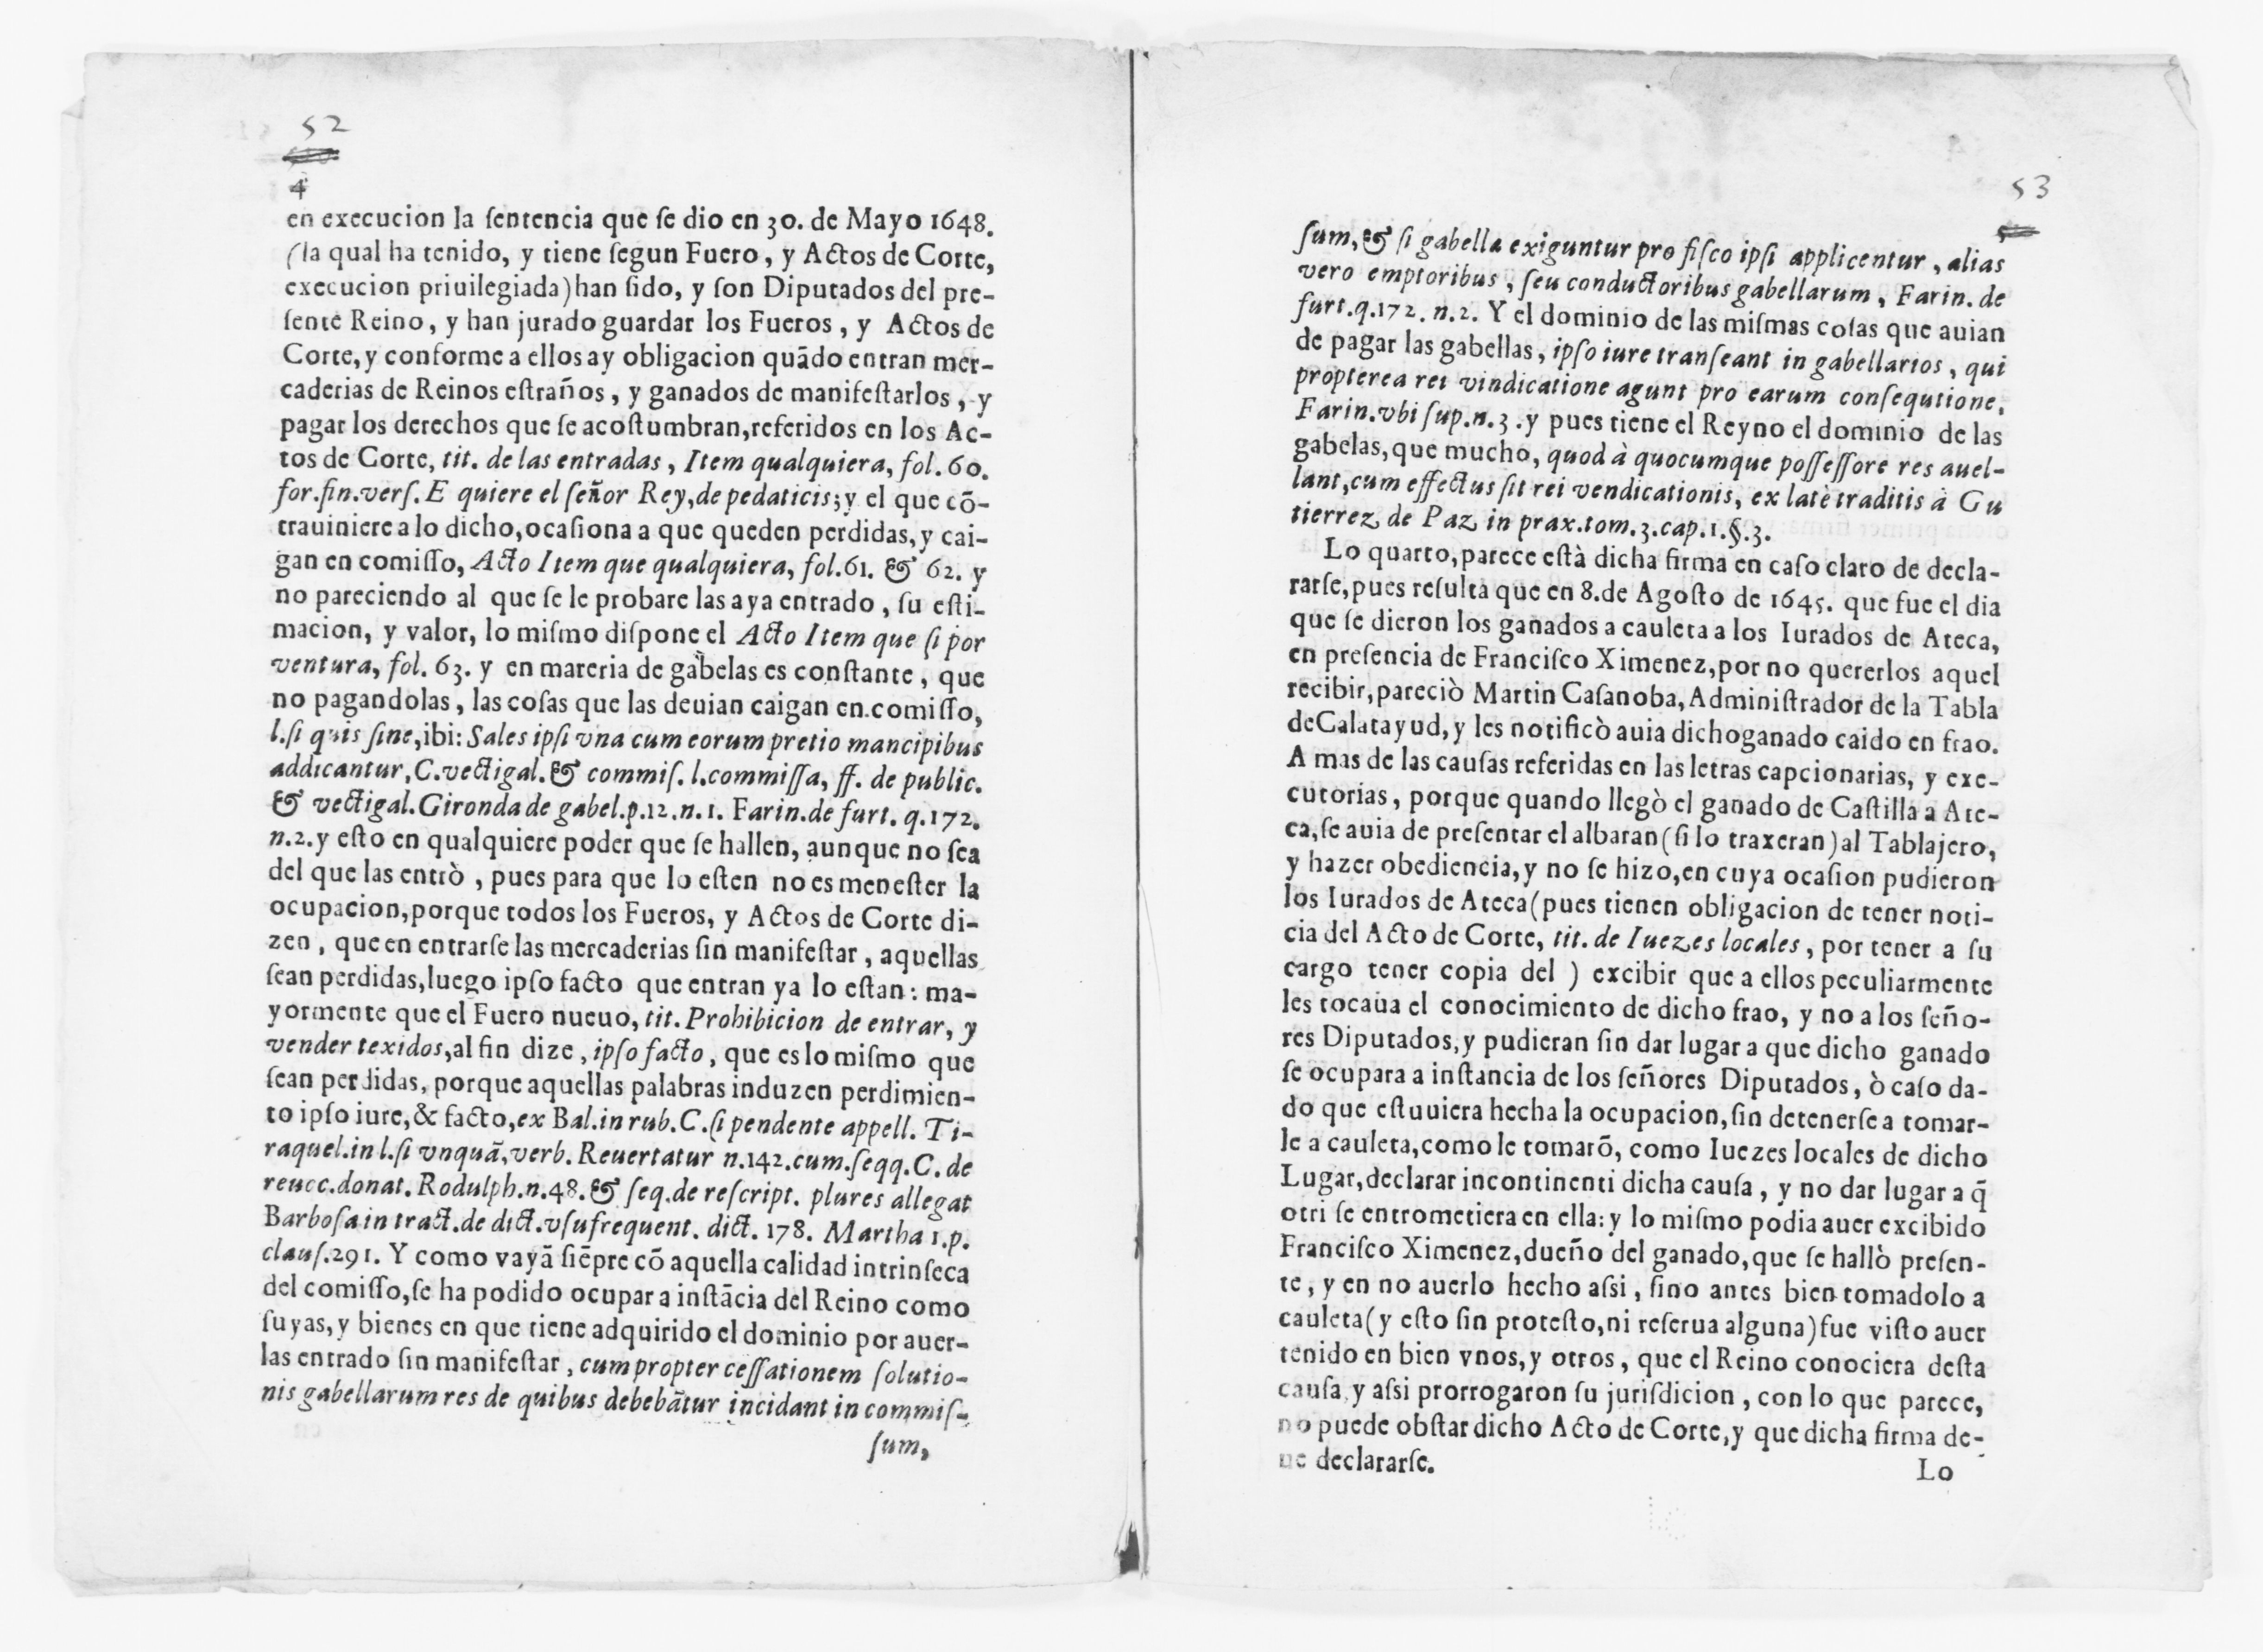 52
4
en execucion la ſentencia que ſe dio en 30. de Mayo 1648.
(la qual ha tenido, y tiene ſegun Fuero, y Actos de Corte,
execucion priuilegiada) han ſido, y ſon Diputados del pre-
ſente Reino, y han jurado guardar los Fueros, y Actos de
Corte, y conforme a ellos ay obligacion quãdo entran mer-
caderias de Reinos eſtraños, y ganados de manifeſtarlos, y
pagar los derechos que ſe acoſtumbran, referidos en los Ac-
tos de Corte, tit. de las entradas, Item qualquiera, fol. 60.
for. fin. verſ. E quiere el ſeñor Rey, de pedaticis; y el que cõ-
trauiniere a lo dicho, ocaſiona a que queden perdidas, y cai-
gan en comiſſo, Acto Item que qualquiera, fol. 61. & 62. y
no pareciendo al que ſe le probare las aya entrado, ſu eſti-
macion, y valor, lo miſmo diſpone el Acto Item que ſi por
ventura, fol. 63. y en materia de gabelas es conſtante, que
no pagandolas, las coſas que las deuian caigan en comiſſo,
l. ſi quis ſine, ibi: Sales ipſi vna cum eorum pretio mancipibus
addicantur, C. vectigal. & commiſ. l. commiſſa, ff. de public.
& vectigal. Gironda de gabel. p. 12. n. 1. Farin. de furt. q. 172.
n. 2. y eſto en qualquiere poder que ſe hallen, aunque no ſea
del que las entrò, pues para que lo eſten no es meneſter la
ocupacion, porque todos los Fueros, y Actos de Corte di-
zen, que en entrarſe las mercaderias ſin manifeſtar, aquellas
ſean perdidas, luego ipſo facto que entran ya lo eſtan: ma-
yormente que el Fuero nueuo, tit. Prohibicion de entrar, y
vender texidos, al fin dize, ipſo facto, que es lo miſmo que
ſean perdidas, porque aquellas palabras induzen perdimien-
to ipſo iure, & facto, ex Bal. in rub. C. ſi pendente appell. Ti-
raquel. in l. ſi vnquã, verb. Reuertatur n. 142. cum. ſeqq. C. de
reuoc. donat. Rodulph. n. 48. & ſeq. de reſcript. plures allegat
Barboſa in tract. de dict. vſufrequent. dict. 178. Martha 1. p.
clauſ. 291. Y como vayã ſiẽpre cõ aquella calidad intrinſeca
del comiſſo, ſe ha podido ocupar a inſtãcia del Reino como
ſuyas, y bienes en que tiene adquirido el dominio por auer-
las entrado ſin manifeſtar, cum propter ceſſationem ſolutio-
nis gabellarum res de quibus debebãtur incidant in commiſ-
ſum,
53
ſum, & ſi gabella exiguntur pro fiſco ipſi applicentur, alias
vero emptoribus, ſeu conductoribus gabellarum, Farin. de
furt. q. 172. n. 2. Y el dominio de las miſmas coſas que auian
de pagar las gabellas, ipſo iure tranſeant in gabellarios, qui
propterea rei vindicatione agunt pro earum conſequtione,
Farin. vbi ſup. n. 3. y pues tiene el Reyno el dominio de las
gabelas, que mucho, quod à quocumque poſſeſſore res auel-
lant, cum effectus ſit rei vendicationis, ex latè traditis à Gu
tierrez de Paz in prax. tom. 3. cap. 1. §. 3.
Lo quarto, parece eſtà dicha firma en caſo claro de decla-
rarſe, pues reſulta que en 8. de Agoſto de 1645. que fue el dia
que ſe dieron los ganados a cauleta a los Iurados de Ateca,
en preſencia de Franciſco Ximenez, por no quererlos aquel
recibir, pareciò Martin Caſanoba, Adminiſtrador de la Tabla
de Calatayud, y les notificò auia dicho ganado caido en frao.
A mas de las cauſas referidas en las letras capcionarias, y exe-
cutorias, porque quando llegò el ganado de Caſtilla a Ate-
ca, ſe auia de preſentar el albaran (ſi lo traxeran) al Tablajero,
y hazer obediencia, y no ſe hizo, en cuya ocaſion pudieron
los Iurados de Ateca (pues tienen obligacion de tener noti-
cia del Acto de Corte, tit. de Iuezes locales, por tener a ſu
cargo tener copia del ) excibir que a ellos peculiarmente
les tocaua el conocimiento de dicho frao, y no a los ſeño-
res Diputados, y pudieran ſin dar lugar a que dicho ganado
ſe ocupara a inſtancia de los ſeñores Diputados, ò caſo da-
do que eſtuuiera hecha la ocupacion, ſin detenerſe a tomar-
le a cauleta, como le tomarõ, como Iuezes locales de dicho
Lugar, declarar incontinenti dicha cauſa, y no dar lugar a q̃
otri ſe entrometiera en ella: y lo miſmo podia auer excibido
Franciſco Ximenez, dueño del ganado, que ſe hallò preſen-
te, y en no auerlo hecho aſsi, ſino antes bien tomadolo a
cauleta (y eſto ſin proteſto, ni reſerua alguna) fue viſto auer
tenido en bien vnos, y otros, que el Reino conociera deſta
cauſa, y aſsi prorrogaron ſu juriſdicion, con lo que parece,
no puede obſtar dicho Acto de Corte, y que dicha firma de-
ue declararſe.
Lo